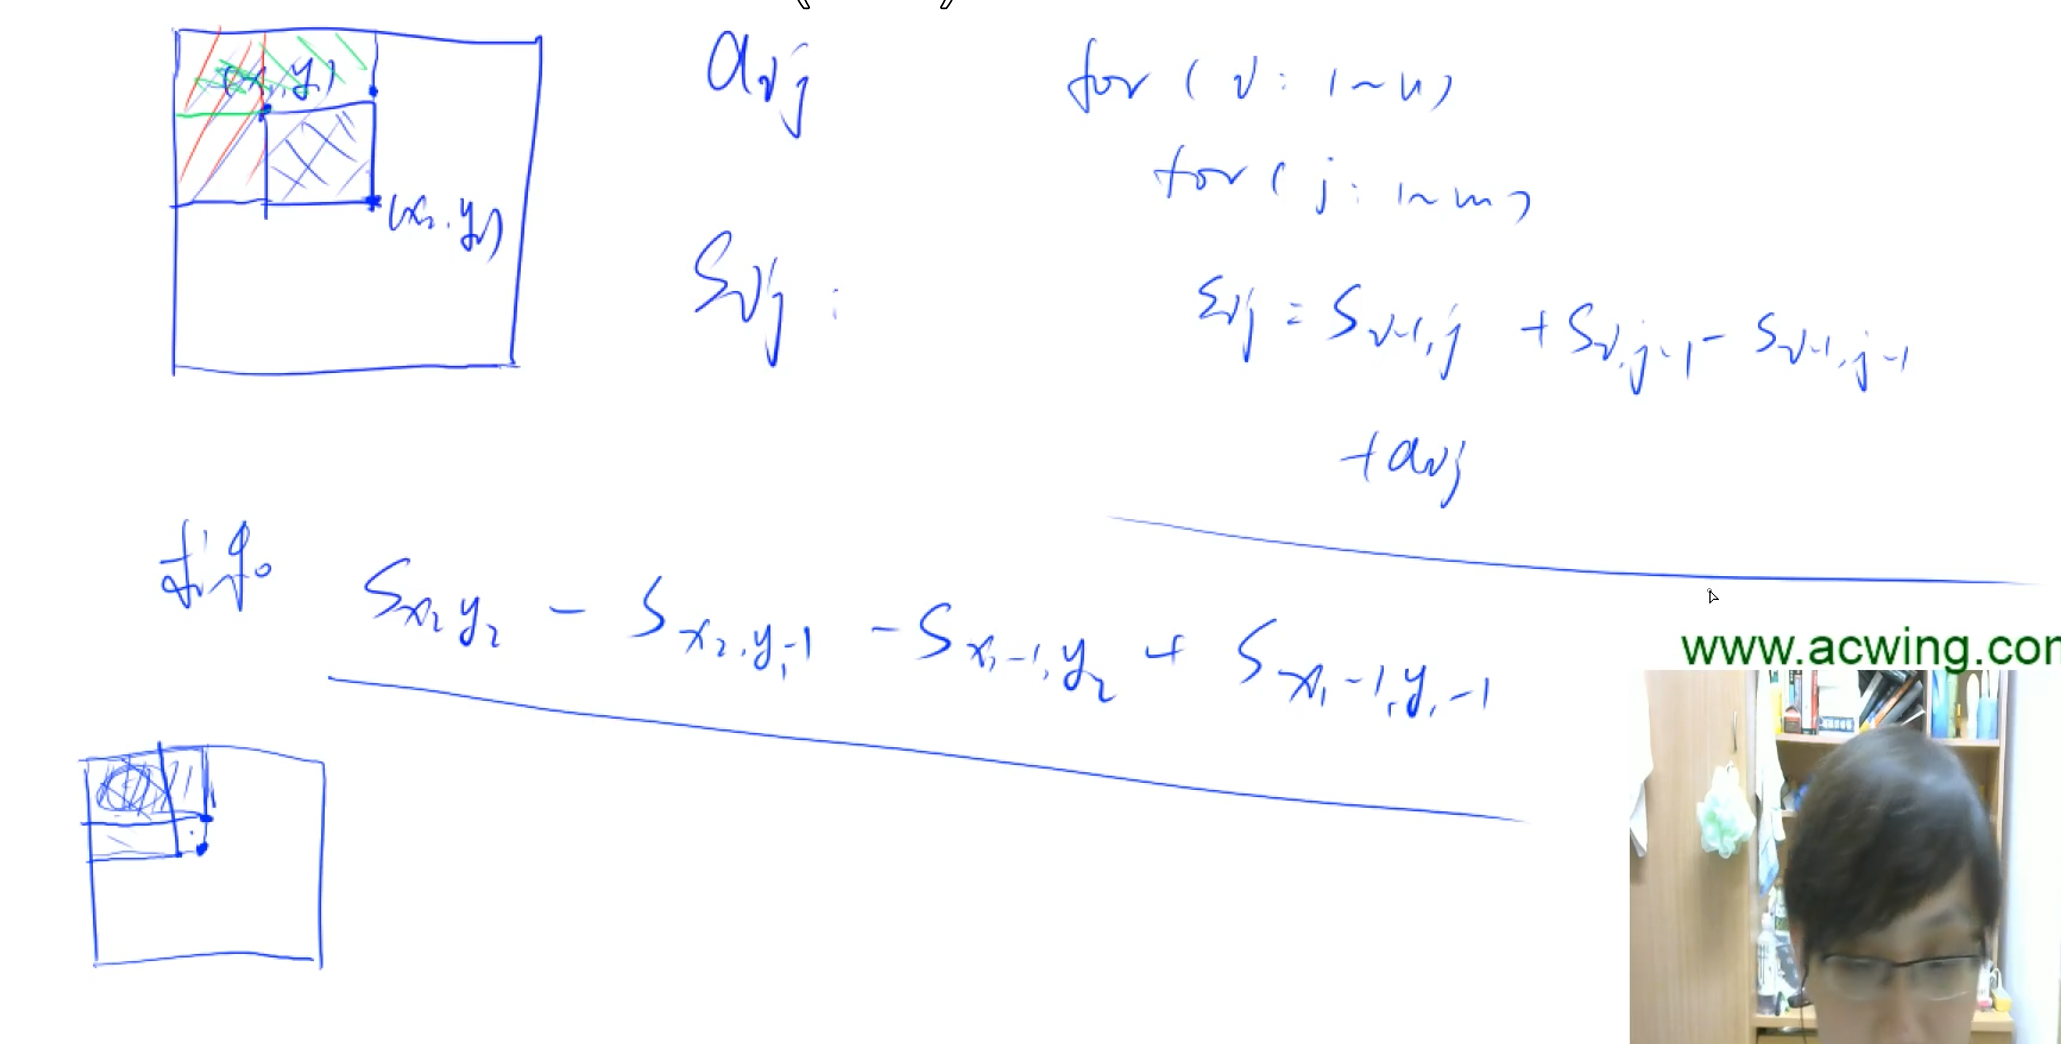 (x₁, y₁)
(x₂, y₂)
aᵢⱼ
Sᵢⱼ :
for ( i : 1~n )
for ( j : 1~m )
Sᵢⱼ = Sᵢ₋₁,ⱼ + Sᵢ,ⱼ₋₁ - Sᵢ₋₁,ⱼ₋₁
+ aᵢⱼ
S x₂ y₂ - S x₂, y₁-1 - S x₁-1, y₂ + S x₁-1, y₁-1
www.acwing.com